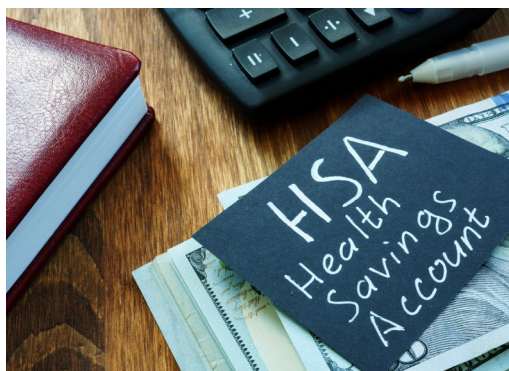 HSA
Health
Savings
Account
ONE